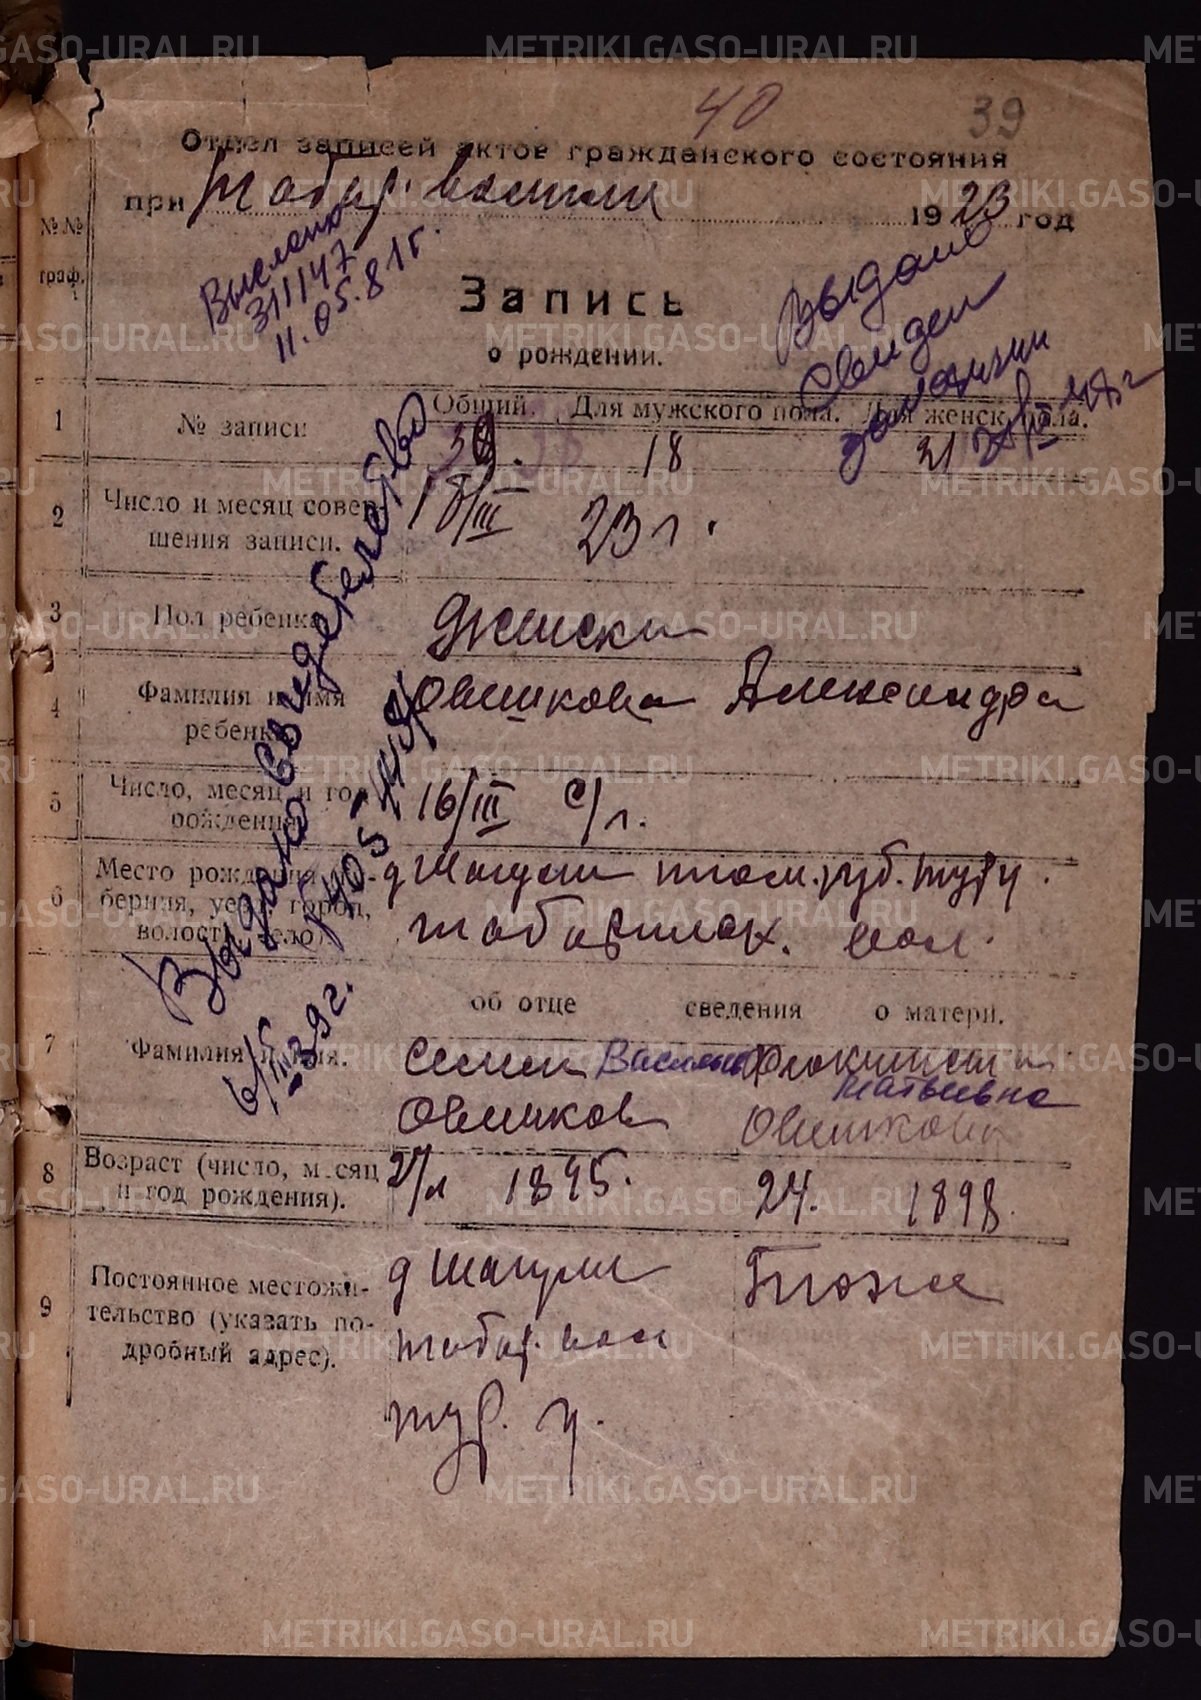 40 39
Отдел записей актов гражданского состояния
при Табор. волости 1923 год
№№
граф.
Выслано
311147
11.05.81г.
Выдано
Свидет
Запись
о рождении.
1 № записи Общий. Для мужского пола. Для женск. пола.
39. 18 21
2 Число и месяц совер-
шения записи.
18/III 23 г.
3 Пол ребенка Женски
4 Фамилия и имя
ребенка
Овчинкова Александра
5 Число, месяц и год
рождения
16/III с/г.
6 Место рождения
берния, уезд, город,
волость, село)
Том. губ. Тур у.
Таборинск. вол.
Выдано свидетельство
6/III-39г.
об отце сведения о матери.
7 Фамилия и имя.
Семен Василь
Матвеевна
8 Возраст (число, месяц
и год рождения).
27/л 1895. 24. 1898.
9 Постоянное местожи-
тельство (указать по-
дробный адрес).
Табор. вол
Тур. у.
Тоже
METRIKI.GASO-URAL.RU